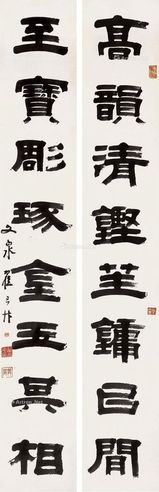 高韻清鏗笙鏞㠯間
至寶彫琢金玉其相
文泉翟云升